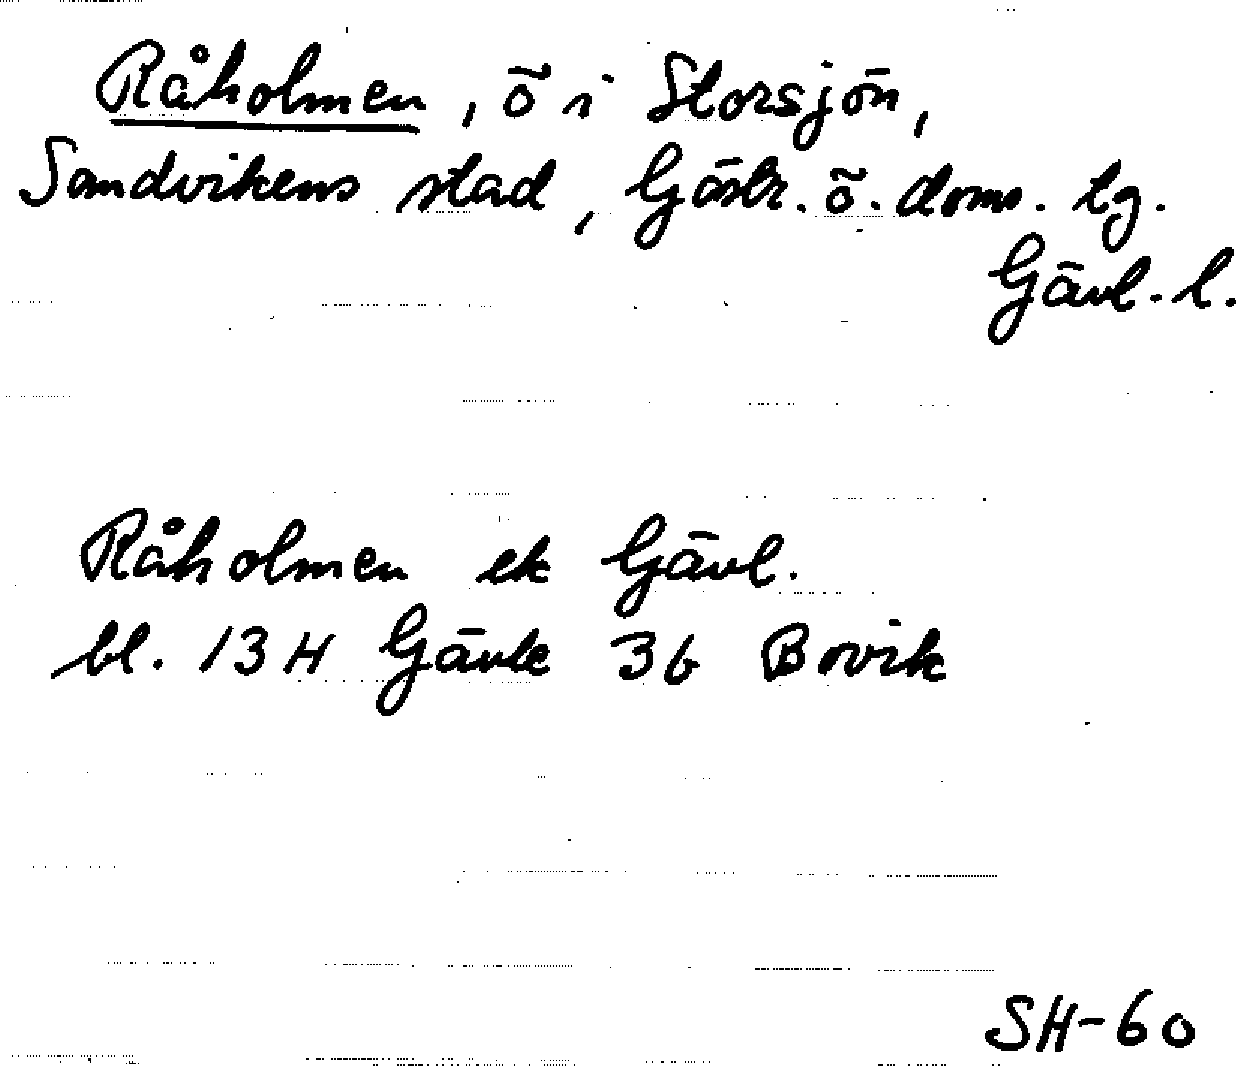 Råholmen, ö i Storsjön,
Sandvikens stad, Gästr. ö. doms. tg.
Gävl. l.
Råholmen ek Gävl.
bl. 13H Gävle 3b Bovik
SH-60